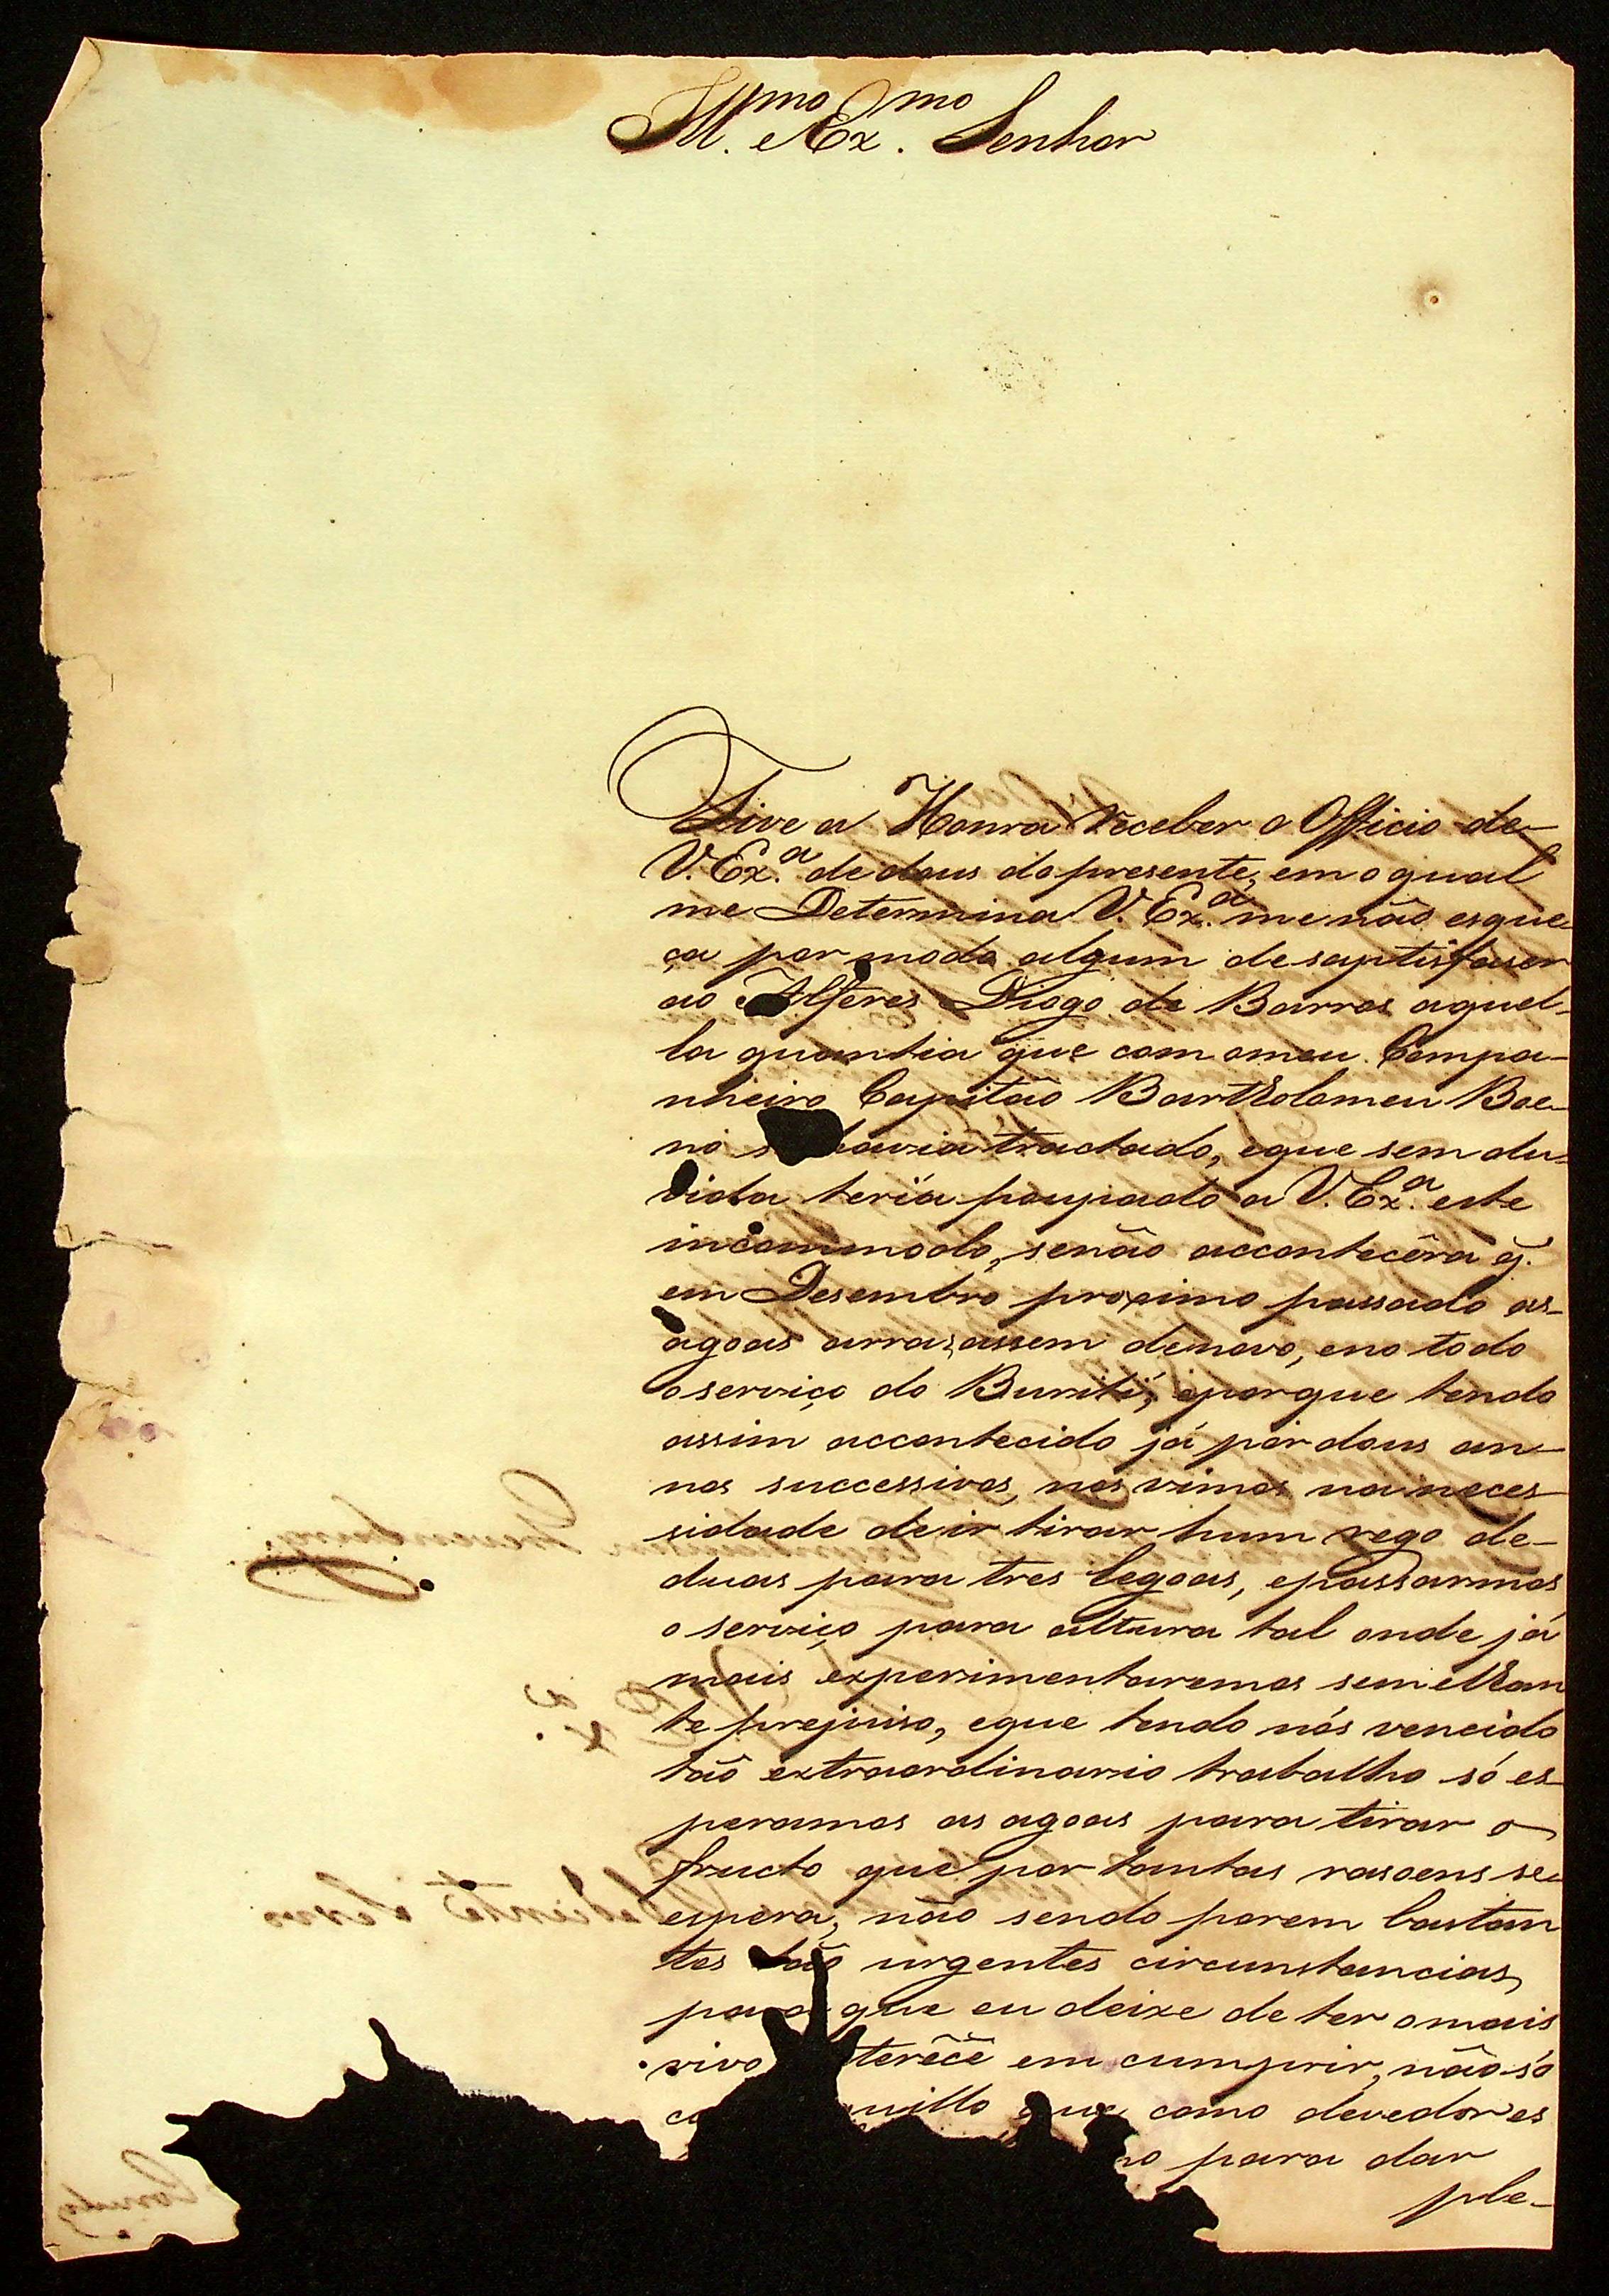 Ill.mo e Ex.mo Senhor
Tive a Honra receber o Officio de
V. Ex.a de dous do presente, em o qual
me Determina V. Ex.a me não esque-
ça por modo algum de saptisfaser
ao Alferes Diogo de Barros aquel-
la quantia que com o meu Compa-
nheiro Capitão Bartholomeu Bue-
no havia tractado, e que sem du-
vida tería poupado a V. Ex.a este
incommodo, se não accontecêra q̃.
em Desembro proximo passado as
agoas arrazassem de novo, e no todo
o serviço do Buriti, e porque tendo
assim accontecido já por dous an-
nos successivos, nos vimos na neces
sidade de ir tirar hum rego de
duas para tres legoas, e passarmos
o serviço para altura tal onde já
mais experimentaremos semelhan
te prejuiso, e que tendo nós vencido
tão extraordinario trabalho só es-
peramos as agoas para tirar o
fructo que por tantas rasoens se
espera, não sendo porem bastan
tes tão urgentes circunstancias,
para que eu deixe de ter o mais
vivo terêce em cumprir, não só
uillo que como devedores
para dar
ple-